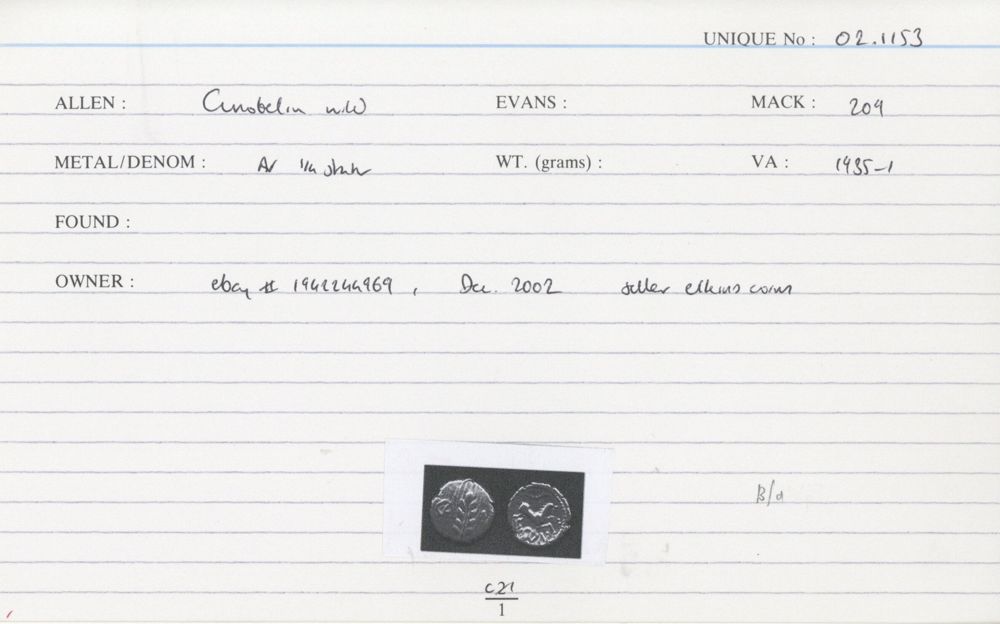 UNIQUE No : 02.1153
ALLEN : Cunobelin n.W EVANS : MACK : 209
METAL/DENOM : AV 1/4 stater WT. (grams) : VA : 1935-1
FOUND :
OWNER : ebay # 1942244969 , Dec. 2002 seller elkins coins
B/a
C21
1